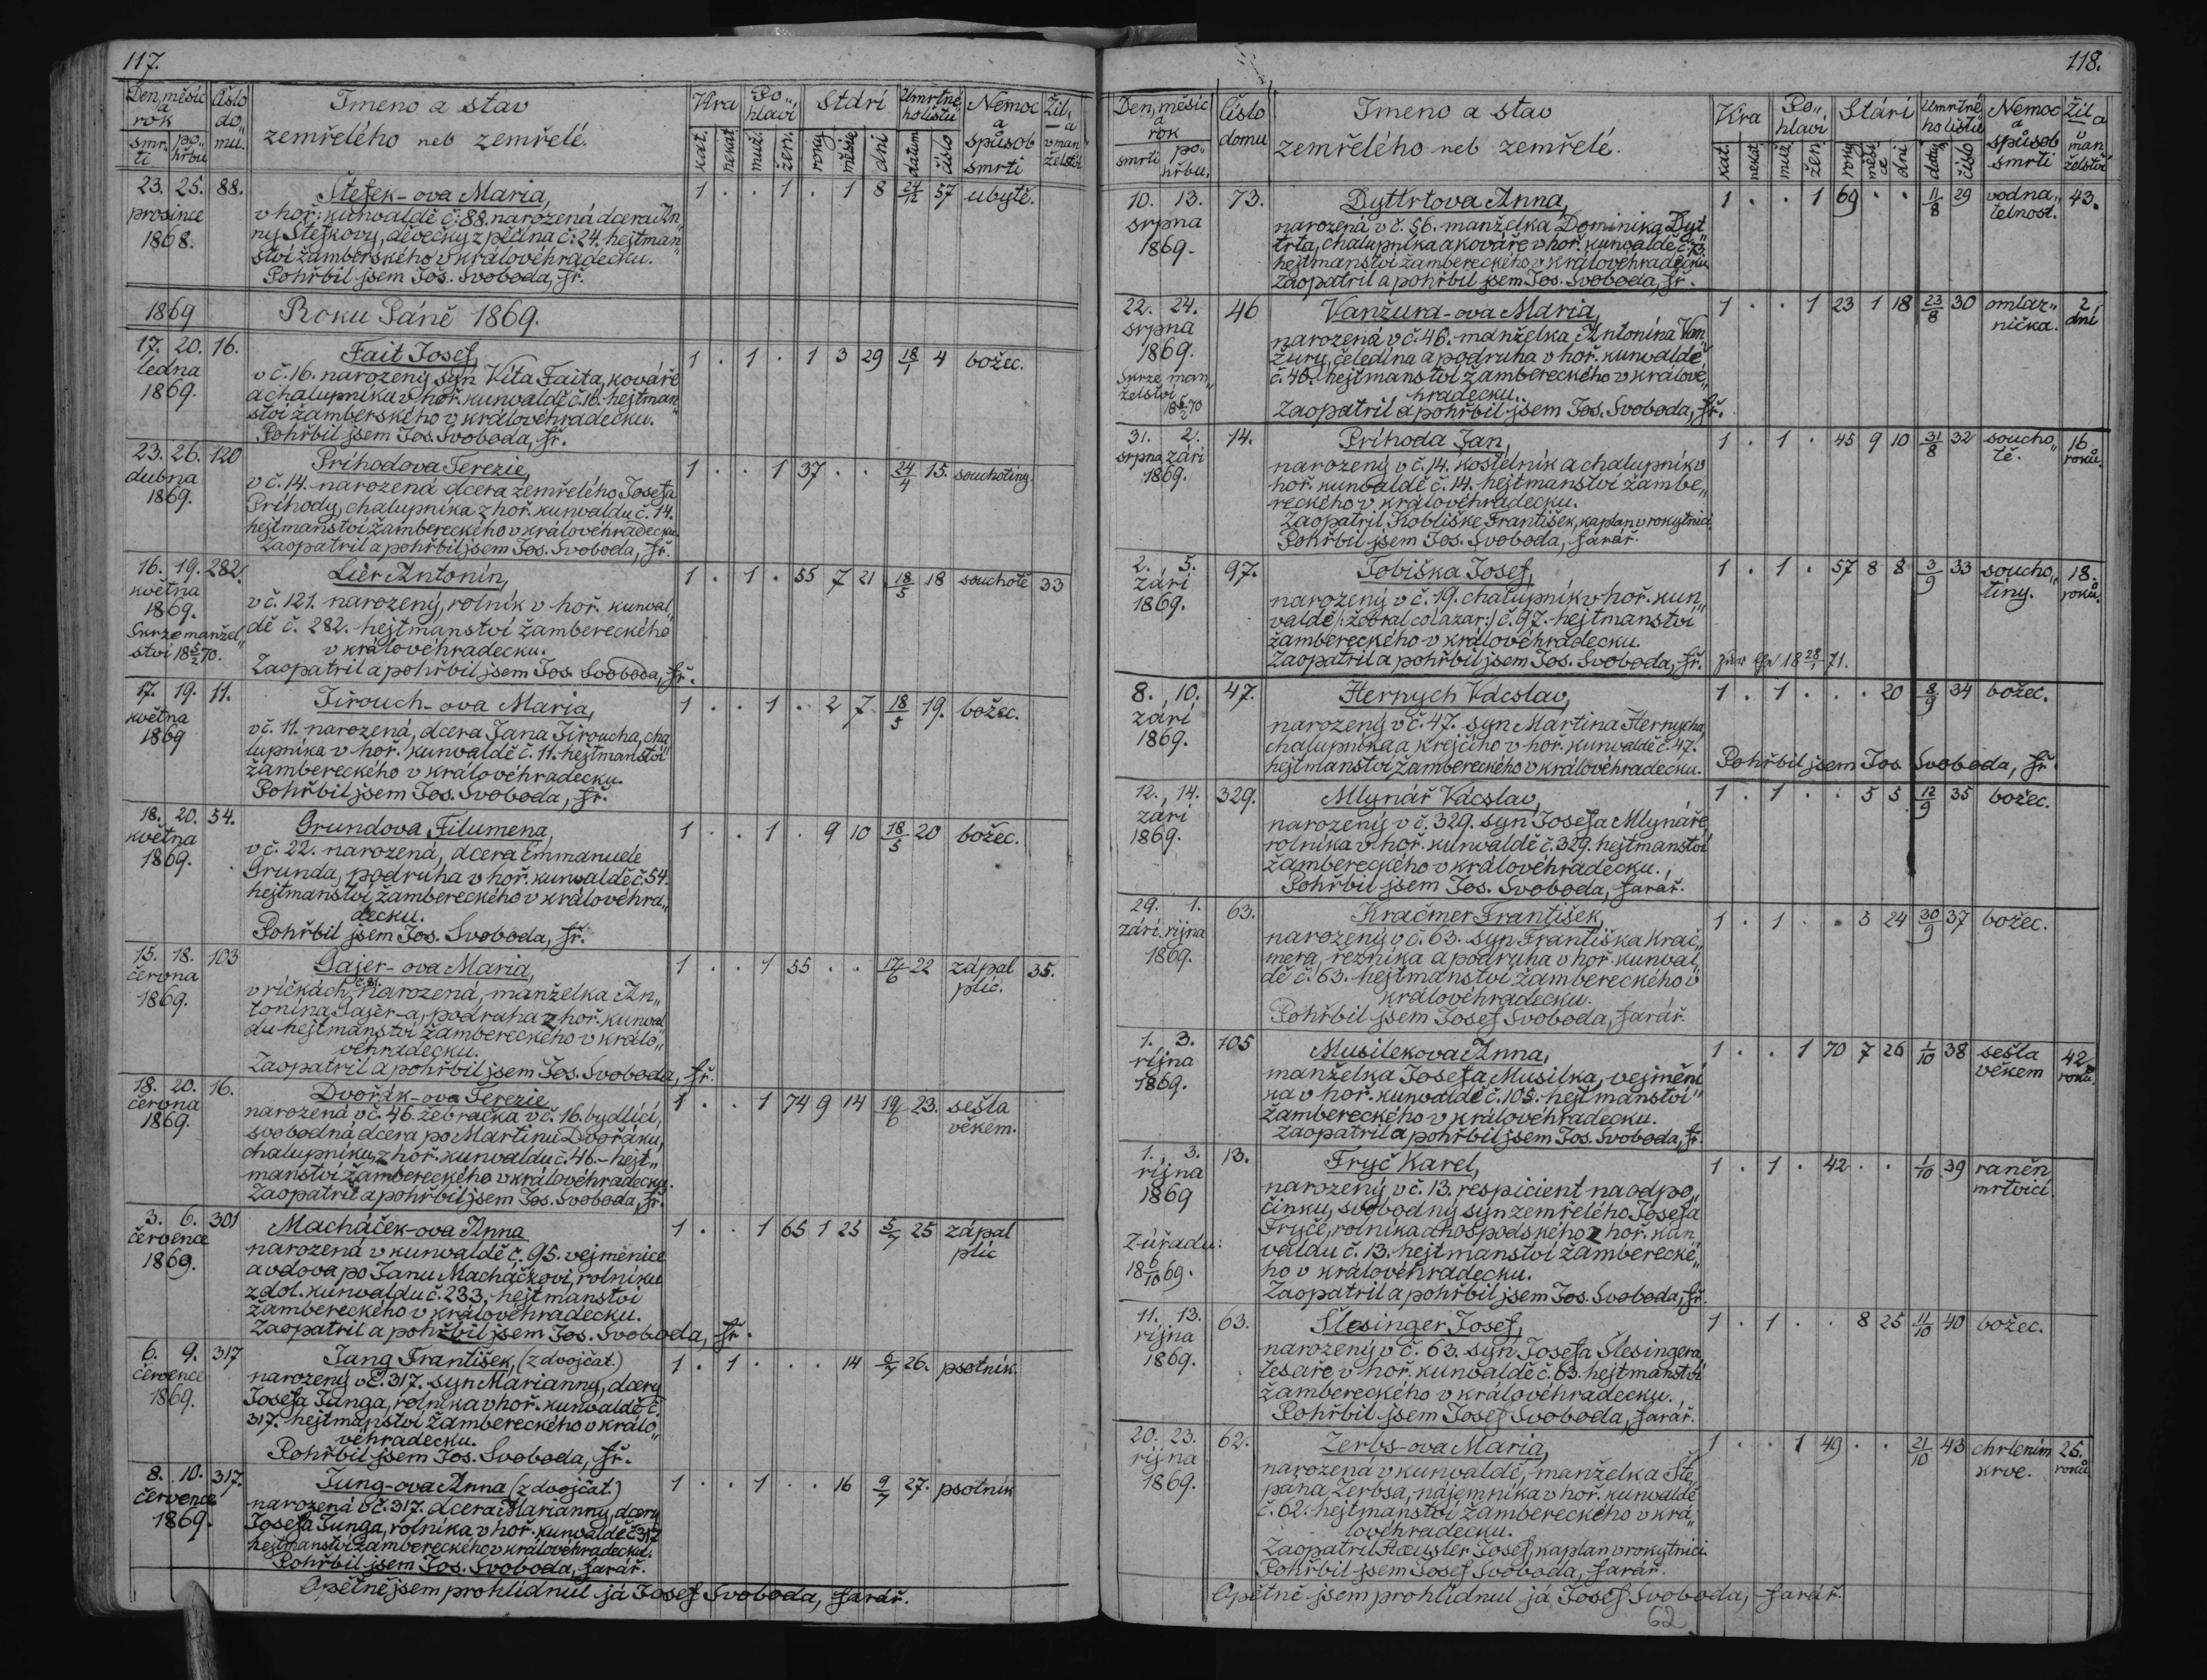 117.
Den, měsíc a rok
smrti
pohřbu
Číslo domu.
Jmeno a stav
zemřelého neb zemřelé.
Kra
kat.
nekat.
Pohlaví
muž.
žen.
Stáří
roky
měsíce
dni
Umrtné ho listu
datum
číslo
Nemoc a spůsob smrti
Žil, a v manželství
23. 25. 88. Štefek-ova Maria, 1 . . 1 . 1 8 24/12 57 ubytě.
prosince
1868.
v hoř: kunvaldě č: 88. narozená dcera An„
ny Štefkovy, děvečky z pěčína č: 24. hejtman„
ství žamberského v královéhradecku.
Pohřbil jsem Jos. Svoboda, fř.
1869 Roku Páně 1869.
17. 20. 16. Fait Josef, 1 . 1 . 1 3 29 18/1 4 božec.
ledna
1869.
v č. 16. narozený syn Víta Faita, kováře
a chalupníka v hoř. kunvaldě č. 16. hejtman„
ství žamberského v královéhradecku.
Pohřbil jsem Jos. Svoboda, fř.
23. 26. 120 Příhodova Terezie, 1 . . 1 37 . . 24/4 15. souchotiny.
dubna
1869.
v č. 14. narozená dcera zemřelého Josefa
Příhody, chalupníka z hoř. kunvaldu č. 14.
hejtmanství žambereckého v královéhradecku.
Zaopatril a pohřbil jsem Jos. Svoboda, fř.
16. 19. 282. Liěr Antonín, 1 . 1 . 55 7 21 18/5 18 souchotě 33
května
1869.
Skrze manžel„
ství 18 5/2 70.
v č. 121. narozený, rolník v hoř. kunval„
dě č. 282. hejtmanství žambereckého
v královéhradecku.
Zaopatril a pohřbil jsem Jos. Svoboda, fř.
17. 19. 11. Jirouch-ova Maria, 1 . . 1 . 2 7 18/5 19. božec.
května
1869
v č. 11. narozená, dcera Jana Jiroucha, cha
lupníka v hoř. kunvaldě č. 11. hejtmanství
žambereckého v královéhradecku.
Pohřbil jsem Jos. Svoboda, fř.
18. 20. 54. Grundova Filumena, 1 . . 1 . 9 10 18/5 20 božec.
května
1869.
v č. 22. narozená, dcera Emmanuele
Grunda, podruha v hoř. kunvaldě č. 54.
hejtmanství žambereckého v královéhra„
decku.
Pohřbil jsem Jos. Svoboda, fř.
15. 18. 103 Pajer-ova Maria, 1 . . 1 55 . . 17/6 22 zápal plic. 35.
června
1869.
v říčkách narozená, manželka An„
tonína Pajer-a, podruha z hoř. kunval
du hejtmanství žambereckého v králo„
véhradecku.
Zaopatril a pohřbil jsem Jos. Svoboda, fř.
18. 20. 16. Dvořák-ova Terezie 1 . . 1 74 9 14 19/6 23. sešla věkem.
června
1869.
narozená v č. 46. žebračka v č. 16. bydlící,
svobodná dcera po Martinu Dvořáku,
chalupníku, z hoř. kunvaldu č. 46.- hejt„
manství žambereckého v královéhradecku.
Zaopatril a pohřbil jsem Jos. Svoboda, fř.
3. 6. 301 Macháček-ova Anna 1 . . 1 65 1 25 5/7 25 zápal plic
července
1869.
narozená v kunvaldě č. 95. vejměnice
a vdova po Janu Macháčkovi, rolníku
z dol. kunvaldu č. 233. hejtmanství
žambereckého v královéhradecku.
Zaopatril a pohřbil jsem Jos. Svoboda, fř.
6. 9. 317 Jang František, (z dvojčat.) 1 . 1 . . . 14 6/7 26. psotník
července
1869.
narozený v č. 317. syn Marianny, dcery
Josefa Janga, rolníka v hoř. kunvaldě č.
317. hejtmanství žambereckého v králo„
véhradecku.
Pohřbil jsem Jos. Svoboda, fř.
8. 10. 317. Jung-ova Anna (z dvojčat.) 1 . . 1 . . 16 9/7 27. psotník
července
1869.
narozená v č. 317. dcera Marianny, dcery
Josefa Junga, rolníka, v hoř. kunvaldě č. 317
hejtmanství žambereckého v královéhradecku.
Pohřbil jsem Jos. Svoboda, farář.
Opětně jsem prohlídnul já Josef Svoboda, farář.
118.
Den, měsíc a rok
smrti
pohřbu.
Číslo domu
Jmeno a stav
zemřelého neb zemřelé.
Kra
kat.
nekat.
Pohlaví
muž
žen
Stáří
roky
měsíce
dni
Umrtné ho listu
datum
číslo
Nemoc a spůsob smrti
Žil a v manželství
10. 13. 73. Dyttrtova Anna, 1 . . 1 69 . . 11/8 29 vodna„ telnost. 43.
srpna
1869.
narozená v č. 56. manželka Dominika Dyt
trta, chalupníka a kováře v hoř. kunvaldě č. 73.
hejtmanství žambereckého v královéhradecku
Zaopatril a pohřbil jsem Jos. Svoboda, fř.
22. 24. 46 Vanžura-ova Maria, 1 . . 1 23 1 18 23/8 30 omlaz„ nička. 2 dní
srpna
1869.
Skrze man„
želství
18 5/2 70
narozená v č. 46. manželka Antonína Van„
žury, čeledína a podruha v hoř. kunvaldě
č. 46. hejtmanství žambereckého v králové„
hradecku.
Zaopatril a pohřbil jsem Jos. Svoboda, fř.
31. 2. 14. Příhoda Jan, 1 . 1 . 45 9 10 31/8 32 soucho„ tě. 16 roků.
srpna září
1869.
narozený v č. 14. kostelník a chalupník v
hoř. kunvaldě č. 14. hejtmanství žambe„
reckého v královéhradecku.
Zaopatril, Kobliške František, kaplan v rokytnici
Pohřbil jsem Jos. Svoboda, farář.
2. 5. 97. Tobiška Josef, 1 . 1 . 57 8 8 3/9 33 soucho„ tiny. 18. roků.
září
1869.
narozený v č. 19. chalupník v hoř. kun„
valdě /: žebral co lazar :/ č. 97. hejtmanství
žambereckého v královéhradecku.
Zaopatril a pohřbil jsem Jos. Svoboda, fř. 18 28/1 71.
8. 10. 47. Hernych Václav, 1 . 1 . . . 20 8/9 34 božec.
září
1869.
narozený v č. 47. syn Martina Hernycha,
chalupníka a krejčího v hoř. kunvaldě č. 47.
hejtmanství žambereckého v královéhradecku. Pohřbil jsem Jos. Svoboda, fř.
12. 14. 329. Mlynář Vácslav, 1 . 1 . . 5 5 12/9 35 božec.
září
1869.
narozený v č. 329. syn Josefa Mlynáře,
rolníka v hoř. kunvaldě č. 329. hejtmanství
žambereckého v královéhradecku.,
Pohřbil jsem Jos. Svoboda, farář.
29. 1. 63. Kračmer František, 1 . 1 . . 3 24 30/9 37 božec.
září. října
1869.
narozený v č. 63. syn Františka Krač„
mera, řezníka a podruha v hoř. kunval„
dě č. 63. hejtmanství žambereckého v
královéhradecku.
Pohřbil jsem Josef Svoboda, farář.
1. 3. 105 Musilekova Anna, 1 . . 1 70 7 26 1/10 38 sešla věkem 42 roků.
října
1869.
manželka Josefa Musilka, vejmění
ka v hoř. kunvaldě č. 105. hejtmanství
žambereckého v královéhradecku.
Zaopatril a pohřbil jsem Jos. Svoboda, fř.
1. 3. 13. Fryč Karel, 1 . 1 . 42 . . 1/10 39 raněn mrtvicí.
října
1869
Z úřadu:
18 6/10 69.
narozený v č. 13. respicient na odpo„
činku, svobodný syn zemřelého Josefa
Fryče, rolníka a hospodského z hoř. kun„
valdu č. 13. hejtmanství žamberecké„
ho v královéhradecku.
Zaopatril a pohřbil jsem Jos. Svoboda, fř.
11. 13. 63. Šlesinger Josef, 1 . 1 . . 8 25 11/10 40 božec.
října
1869.
narozený v č. 63. syn Josefa Šlesingera,
tesaře v hoř. kunvaldě č. 63. hejtmanství
žambereckého v královéhradecku.
Pohřbil jsem Josef Svoboda, farář.
20. 23. 62. Zerbs-ova Maria, 1 . . 1 49 . . 21/10 43 chrlením krve. 25. roků
října
1869.
narozená v kunvaldě, manželka Ště„
pána Zerbsa, nájemníka v hoř. kunvaldě
č. 62. hejtmanství žambereckého v krá„
lovéhradecku.
Zaopatril Haeusler Josef, kaplan v rokytnici
Pohřbil jsem Josef Svoboda, farář.
Opětně jsem prohlídnul já Josef Svoboda, farář.
62